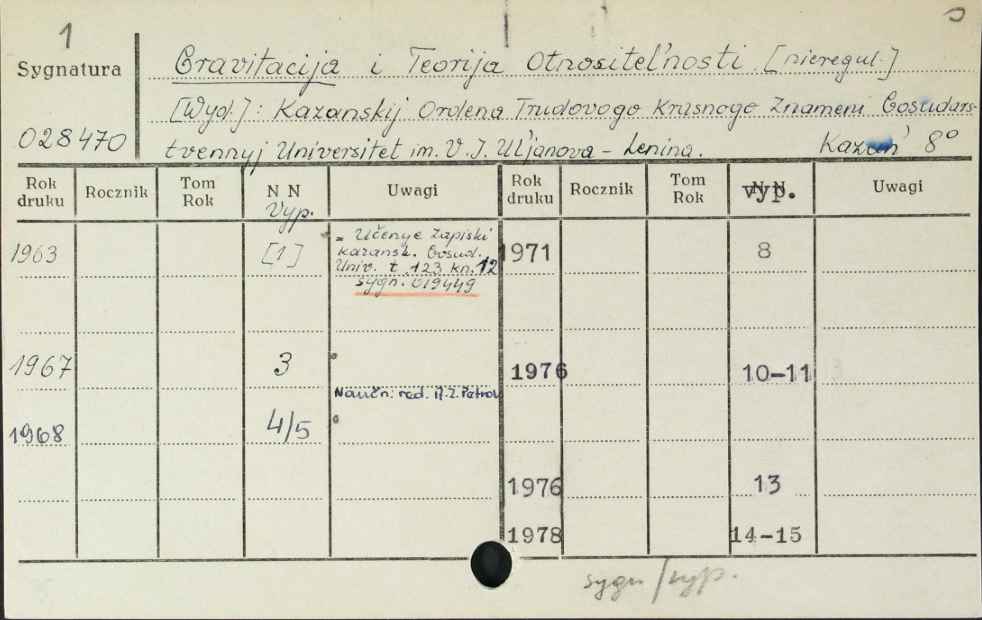 1
Sygnatura
Gravitacija i Teorija Otnositel'nosti. [nieregul.]
[Wyd.]: Kazanskij Ordena Trudovogo Krasnogo Znameni Gosudars-
028470
tvennyj Universitet im. V. I. Ul'janova - Lenina. Kazan' 8°
Rok druku Rocznik Tom Rok N N Vyp. Uwagi Rok druku Rocznik Tom Rok N N vyp. Uwagi
1963 [1] „ Učenye Zapiski
kazansk. Gosud.
Univ. t. 123 kn. 12
sygn. 019449
1971 8
1967 3 1976 10-11
Naučn. red. A.Z. Petrov
1968 4/5
1976 13
1978 14-15
sygn/vyp.